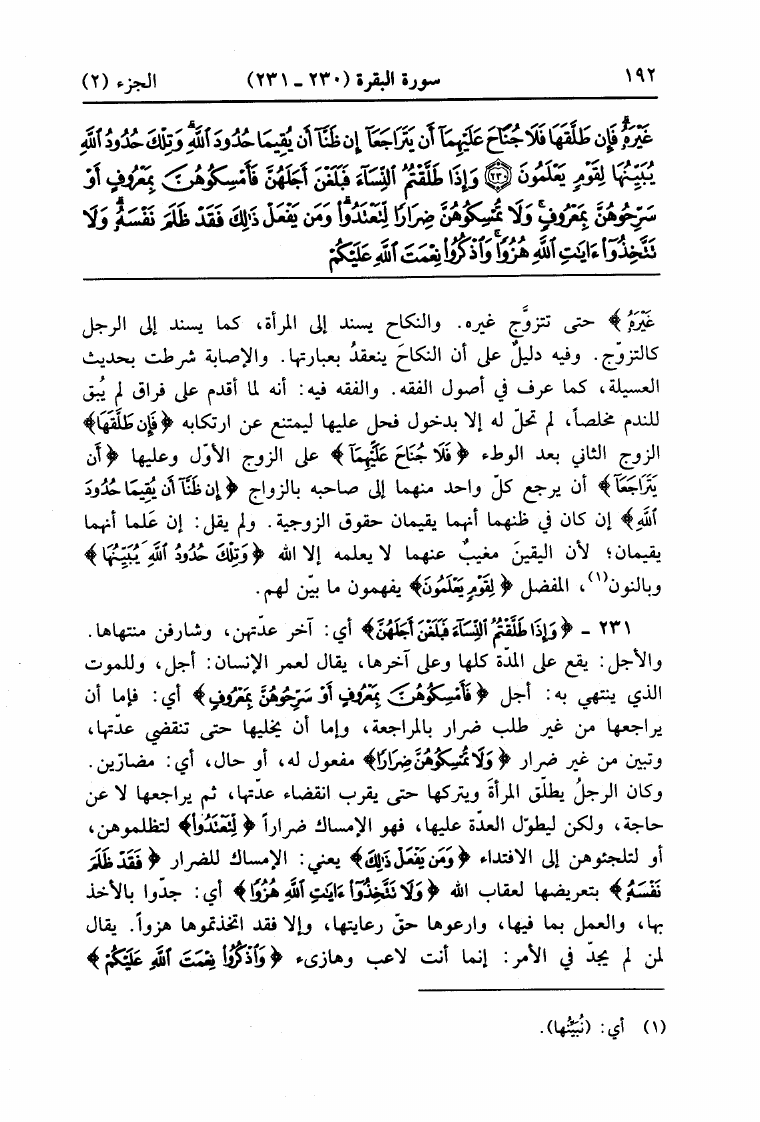 ١٩٢ سورة البقرة (٢٣٠ ـ ٢٣١) الجزء (٢)
غَيْرَهُۥۗ فَإِن طَلَّقَهَا فَلَا جُنَاحَ عَلَيْهِمَآ أَن يَتَرَاجَعَآ إِن ظَنَّآ أَن يُقِيمَا حُدُودَ ٱللَّهِۗ وَتِلْكَ حُدُودُ ٱللَّهِ
يُبَيِّنُهَا لِقَوْمٍ يَعْلَمُونَ ۝٢٣٠ وَإِذَا طَلَّقْتُمُ ٱلنِّسَآءَ فَبَلَغْنَ أَجَلَهُنَّ فَأَمْسِكُوهُنَّ بِمَعْرُوفٍ أَوْ
سَرِّحُوهُنَّ بِمَعْرُوفٍۚ وَلَا تُمْسِكُوهُنَّ ضِرَارًا لِّتَعْتَدُوا۟ۚ وَمَن يَفْعَلْ ذَٰلِكَ فَقَدْ ظَلَمَ نَفْسَهُۥۚ وَلَا
تَتَّخِذُوٓا۟ ءَايَٰتِ ٱللَّهِ هُزُوًاۚ وَٱذْكُرُوا۟ نِعْمَتَ ٱللَّهِ عَلَيْكُمْ
غَيْرَهُۥ﴾ حتى تتزوَّج غيره. والنكاح يسند إلى المرأة، كما يسند إلى الرجل
كالتزوّج. وفيه دليلٌ على أن النكاحَ ينعقدُ بعبارتها. والإصابة شرطت بحديث
العسيلة، كما عرف في أصول الفقه. والفقه فيه: أنه لما أقدم على فراق لم يُبق
للندم مخلصاً، لم تحلّ له إلا بدخول فحل عليها ليمتنع عن ارتكابه ﴿فَإِن طَلَّقَهَا﴾
الزوج الثاني بعد الوطء ﴿فَلَا جُنَاحَ عَلَيْهِمَآ﴾ على الزوج الأوّل وعليها ﴿أَن
يَتَرَاجَعَآ﴾ أن يرجع كلّ واحد منهما إلى صاحبه بالزواج ﴿إِن ظَنَّآ أَن يُقِيمَا حُدُودَ
ٱللَّهِ﴾ إن كان في ظنهما أنهما يقيمان حقوق الزوجية. ولم يقل: إن عَلما أنهما
يقيمان؛ لأن اليقينَ مغيبٌ عنهما لا يعلمه إلا الله ﴿وَتِلْكَ حُدُودُ ٱللَّهِ يُبَيِّنُهَا﴾
وبالنون(١)، المفضل ﴿لِقَوْمٍ يَعْلَمُونَ﴾ يفهمون ما بيّن لهم.
٢٣١ ـ ﴿وَإِذَا طَلَّقْتُمُ ٱلنِّسَآءَ فَبَلَغْنَ أَجَلَهُنَّ﴾ أي: آخر عدّتهن، وشارفن منتهاها.
والأجل: يقع على المدّة كلها وعلى آخرها، يقال لعمر الإنسان: أجل، وللموت
الذي ينتهي به: أجل ﴿فَأَمْسِكُوهُنَّ بِمَعْرُوفٍ أَوْ سَرِّحُوهُنَّ بِمَعْرُوفٍ﴾ أي: فإما أن
يراجعها من غير طلب ضرار بالمراجعة، وإما أن يخليها حتى تنقضي عدّتها،
وتبين من غير ضرار ﴿وَلَا تُمْسِكُوهُنَّ ضِرَارًا﴾ مفعول له، أو حال، أي: مضارّين.
وكان الرجلُ يطلّق المرأةَ ويتركها حتى يقرب انقضاء عدّتها، ثم يراجعها لا عن
حاجة، ولكن ليطوّل العدّة عليها، فهو الإمساك ضراراً ﴿لِّتَعْتَدُوا۟﴾ لتظلموهن،
أو لتلجئوهن إلى الافتداء ﴿وَمَن يَفْعَلْ ذَٰلِكَ﴾ يعني: الإمساك للضرار ﴿فَقَدْ ظَلَمَ
نَفْسَهُۥ﴾ بتعريضها لعقاب الله ﴿وَلَا تَتَّخِذُوٓا۟ ءَايَٰتِ ٱللَّهِ هُزُوًا﴾ أي: جدّوا بالأخذ
بها، والعمل بما فيها، وارعوها حقّ رعايتها، وإلا فقد اتخذتموها هزواً. يقال
لمن لم يجدّ في الأمر: إنما أنت لاعب وهازىء ﴿وَٱذْكُرُوا۟ نِعْمَتَ ٱللَّهِ عَلَيْكُمْ﴾
(١) أي: (نُبَيِّنُها).